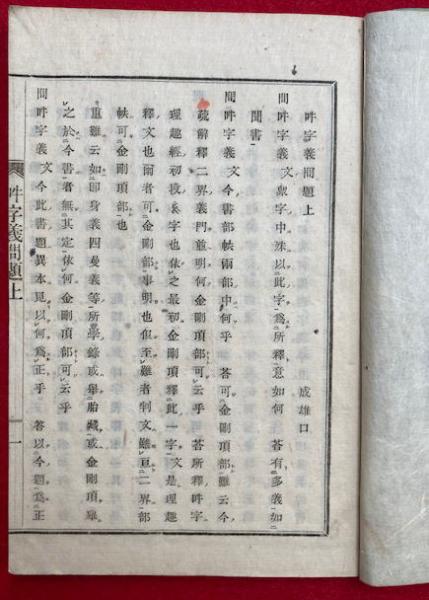 吽字義問題上
成雄口
問吽字義文衆字中殊以此字爲所釋意如何　答有多義如
聞書
問吽字義文今書部帙兩部中何乎　答可金剛頂部云今
疏解釋二界義門並明何金剛頂部可云乎答所釋吽字
理趣經初我眞字也依之最初金剛頂釋此一字文是理趣
釋文也爾者可金剛部事明也但至難者制文雖亘二界部
帙可金剛頂部也
重難云如即身義四曼義等所學錄或擧胎藏或金剛頂
之於今書者無其定依何金剛頂部可云乎
問吽字義文今此書題異本見以何爲正乎　答以今題爲正
吽字義問題上
一